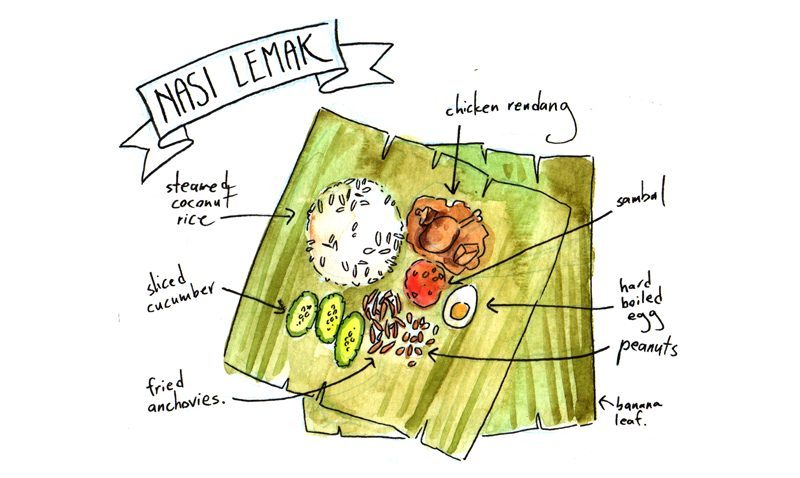 NASI LEMAK
chicken rendang
steamed
coconut
rice
sambal
sliced
cucumber
hard
boiled
egg
peanuts
fried
anchovies.
banana
leaf.